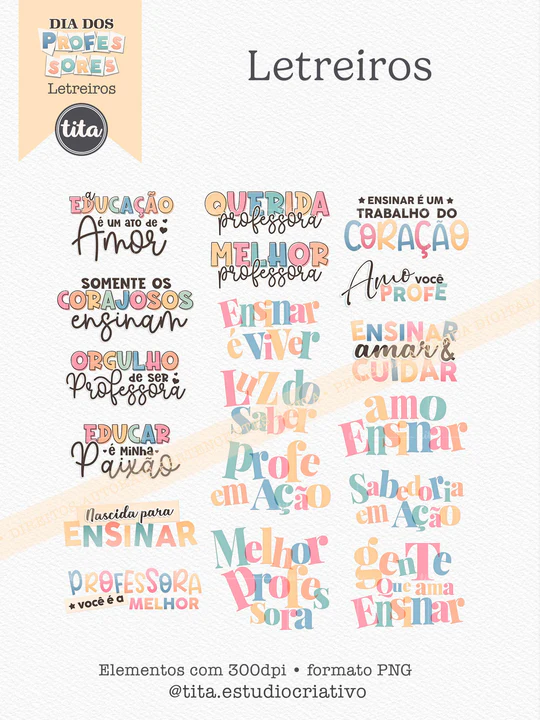 DIA DOS
PROFES
SORES
Letreiros
tita
Letreiros
a
EDUCAÇÃO
é um ato de
Amor
SOMENTE OS
CORAJOSOS
ensinam
ORGULHO
de ser
Professora
EDUCAR
é minha
Paixão
Nascida para
ENSINAR
PROFESSORA
você é a
MELHOR
QUERIDA
professora
MELHOR
professora
Ensinar
é ViVer
Luz do
Saber
Profe
em Ação
Melhor
Profes
sora
ENSINAR É UM
TRABALHO DO
CORAÇÃO
Amo você
PROFE
ENSINAR
amar &
CUIDAR
amo
Ensinar
Sabedoria
em Ação
genTe
Que ama
Ensinar
Elementos com 300dpi • formato PNG
@tita.estudiocriativo